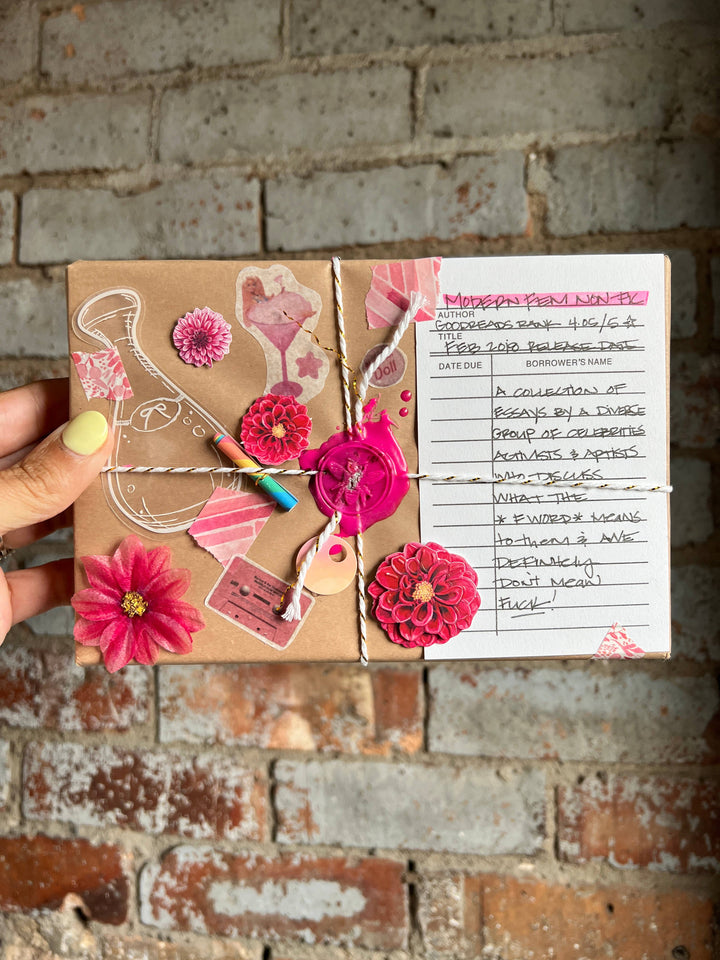 MODERN FEM NON-FIC
AUTHOR
GOODREADS RANK 4.05/5 ☆
TITLE
FEB 2020 RELEASE DATE
DATE DUE
BORROWER'S NAME
A COLLECTION OF
ESSAYS BY A DIVERSE
GROUP OF CELEBRITIES
ACTIVISTS & ARTISTS
WHO DISCUSS
WHAT THE
*F WORD* MEANS
to them & WE
DEFINITELY
DON'T MEAN
FUCK!
Doll